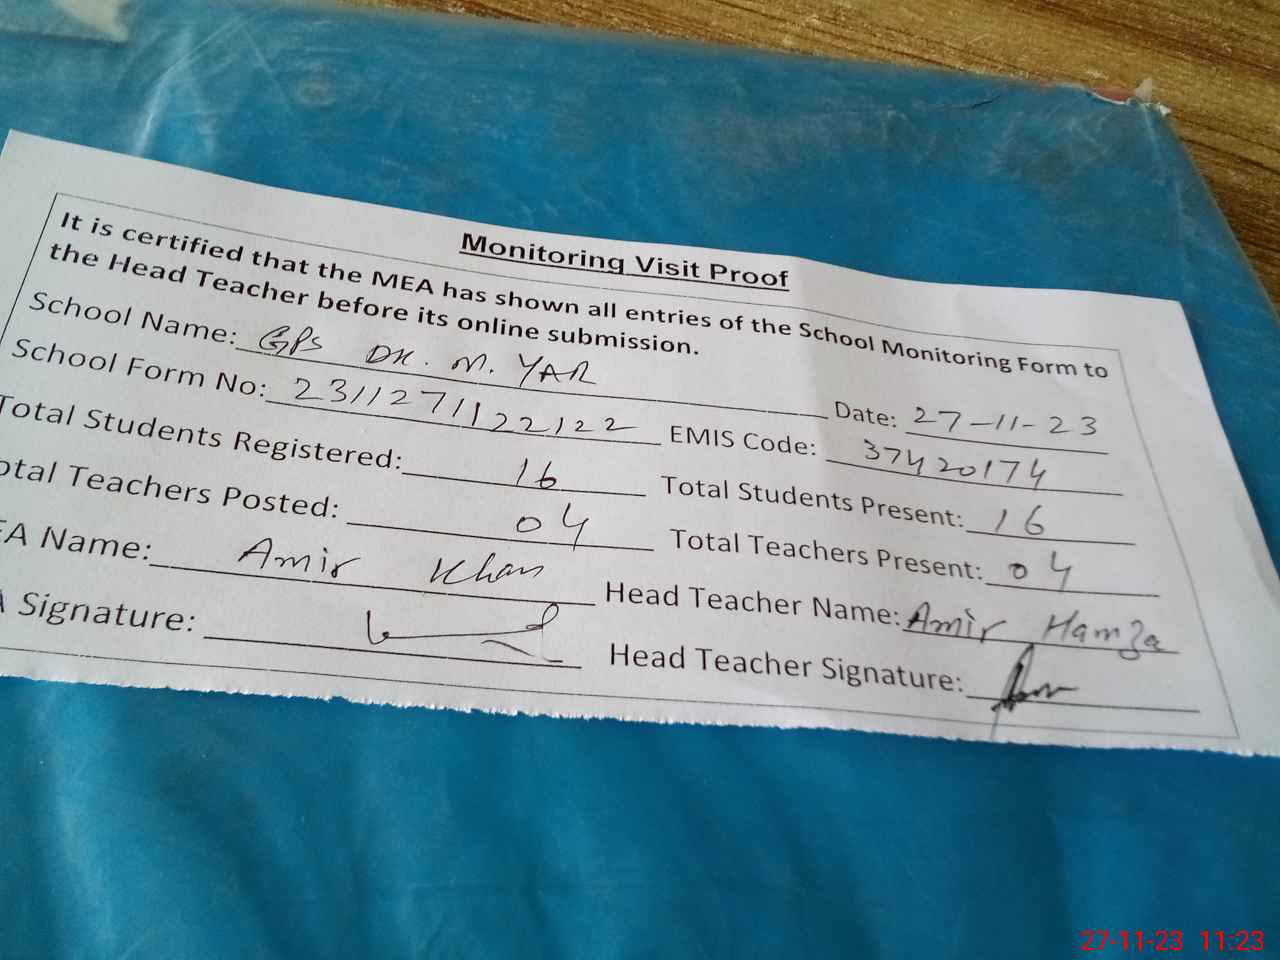 Monitoring Visit Proof
It is certified that the MEA has shown all entries of the School Monitoring Form to
the Head Teacher before its online submission.
School Name: GPS DK. M. YAR Date: 27-11-23
School Form No: 2311271122122 EMIS Code: 37420174
Total Students Registered: 16 Total Students Present: 16
otal Teachers Posted: 04 Total Teachers Present: 04
EA Name: Amir Khan Head Teacher Name: Amir Hamza
A Signature: Head Teacher Signature:
27-11-23 11:23